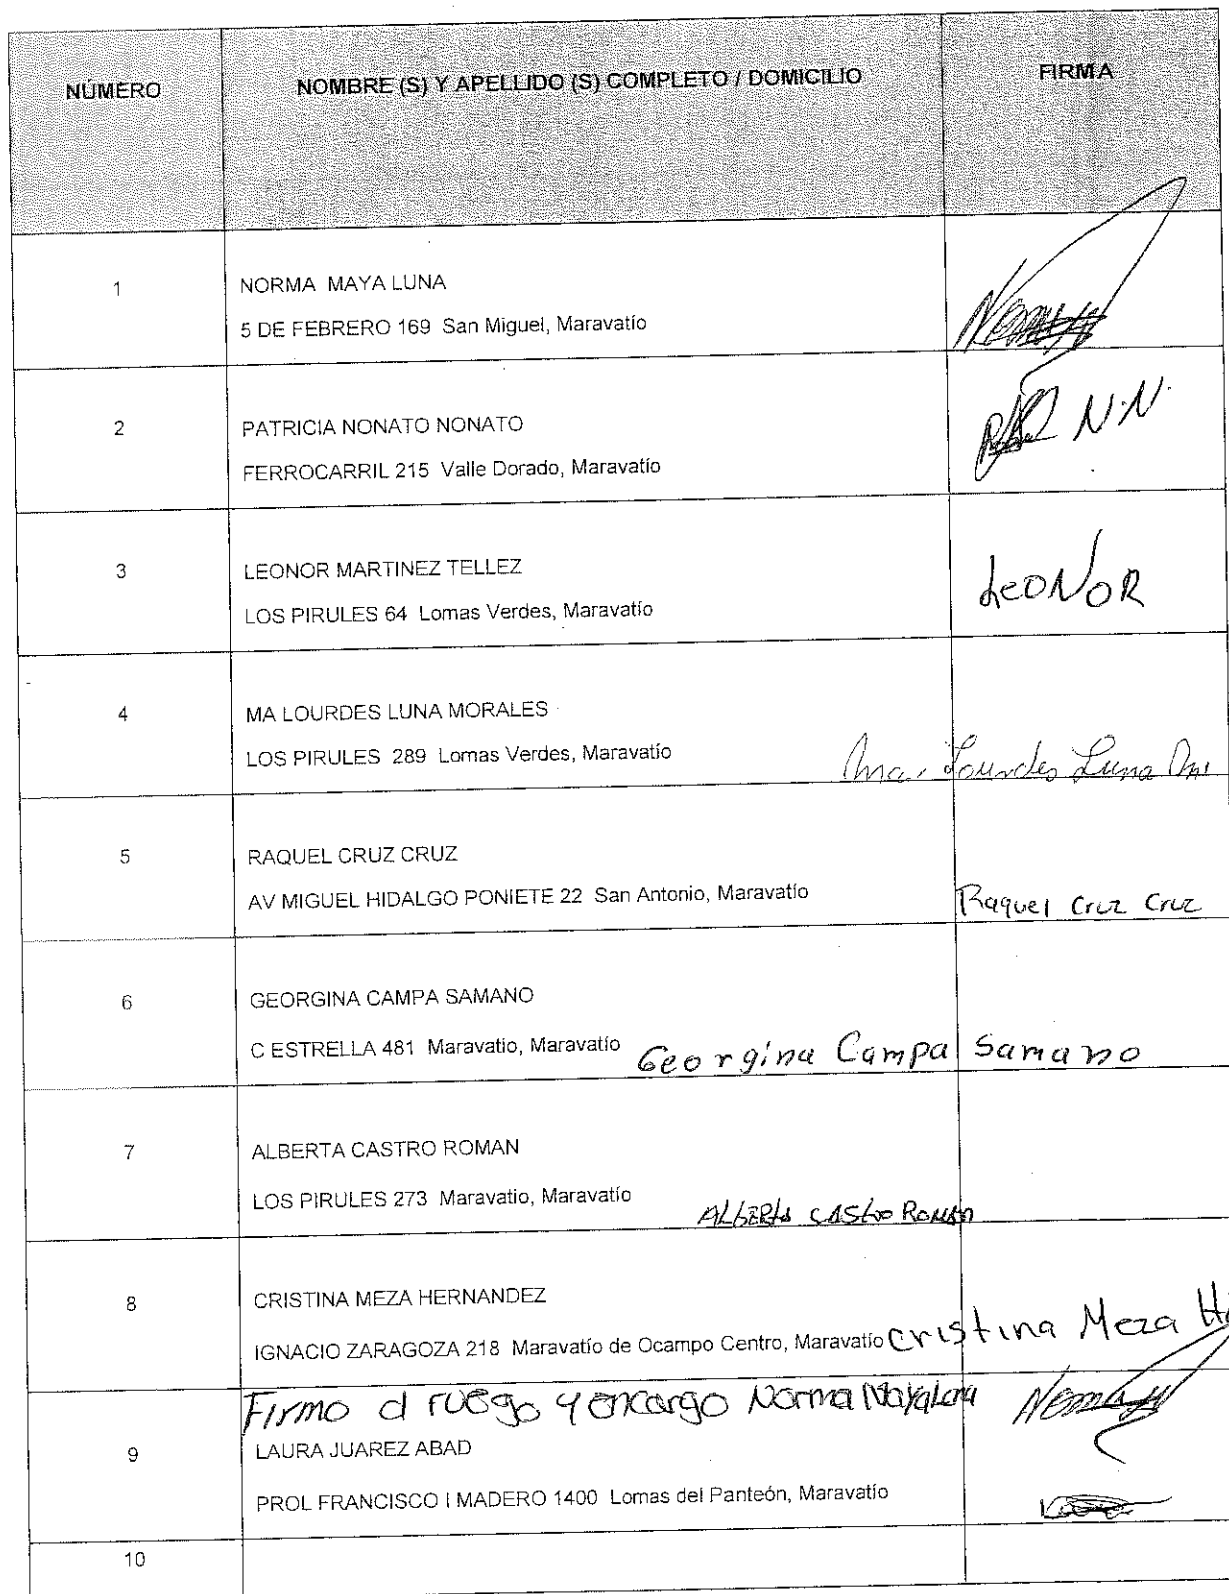 NÚMERO NOMBRE (S) Y APELLIDO (S) COMPLETO / DOMICILIO FIRMA
1 NORMA MAYA LUNA
5 DE FEBRERO 169 San Miguel, Maravatío
2 PATRICIA NONATO NONATO
N.N.
FERROCARRIL 215 Valle Dorado, Maravatío
3 LEONOR MARTINEZ TELLEZ
LEONOR
LOS PIRULES 64 Lomas Verdes, Maravatío
4 MA LOURDES LUNA MORALES
LOS PIRULES 289 Lomas Verdes, Maravatío
Ma. Lourdes Luna Mo
5 RAQUEL CRUZ CRUZ
AV MIGUEL HIDALGO PONIETE 22 San Antonio, Maravatío
Raquel Cruz Cruz
6 GEORGINA CAMPA SAMANO
C ESTRELLA 481 Maravatio, Maravatío
Georgina Campa Samano
7 ALBERTA CASTRO ROMAN
LOS PIRULES 273 Maravatio, Maravatío
ALBERTA CASTRO ROMAN
8 CRISTINA MEZA HERNANDEZ
IGNACIO ZARAGOZA 218 Maravatío de Ocampo Centro, Maravatío
Cristina Meza H
Firmo a ruego y encargo Norma Maya Luna
9 LAURA JUAREZ ABAD
PROL FRANCISCO I MADERO 1400 Lomas del Panteón, Maravatío
10